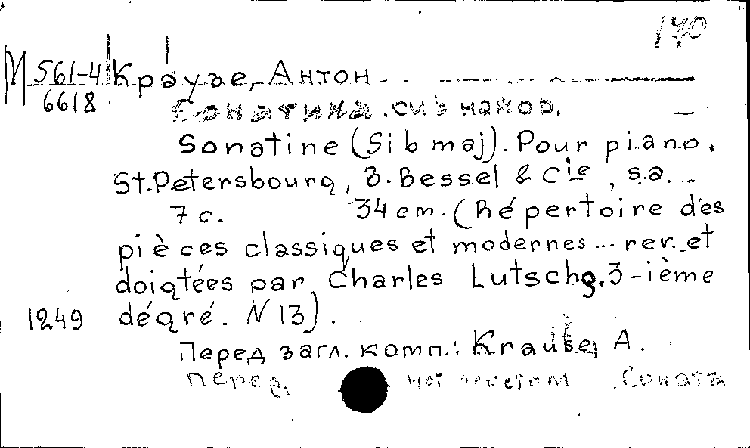 170
М 561-4 Краузе, Антон
6618
Сонатина. си ь мажор.
Sonatine (Si b maj). Pour piano.
St.Petersbourg, B. Bessel & Cie, s.a.
7 c. 34 cm. (Répertoire des
pièces classiques et modernes... rev. et
doigtées par Charles Lutschg. 3-ième
1249 degré. N 13).
Перед загл. комп.: Krause, A.
Перед. Соната